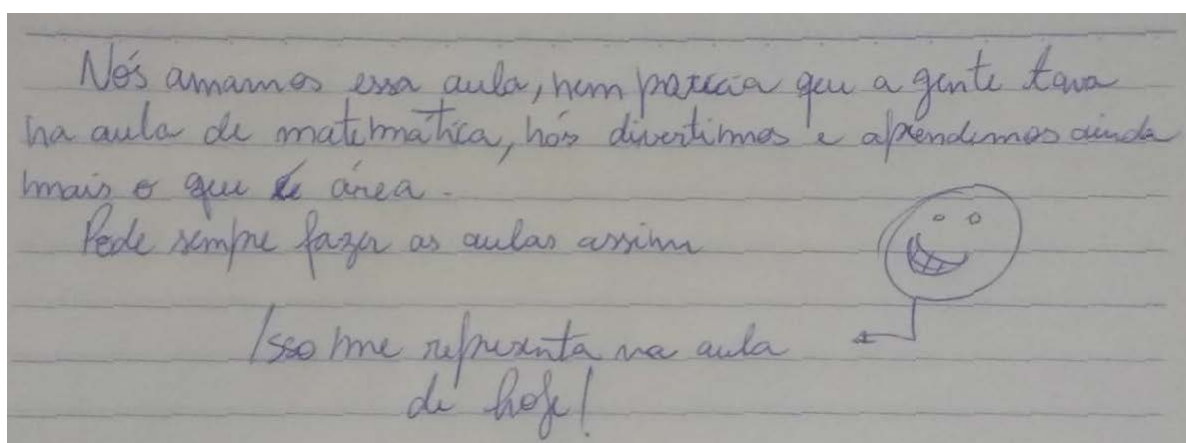 Nós amamos essa aula, nem parecia que a gente tava
na aula de matemática, nós divertimos e aprendemos ainda
mais o que é área.
Pode sempre fazer as aulas assim
Isso me representa na aula
de hoje!